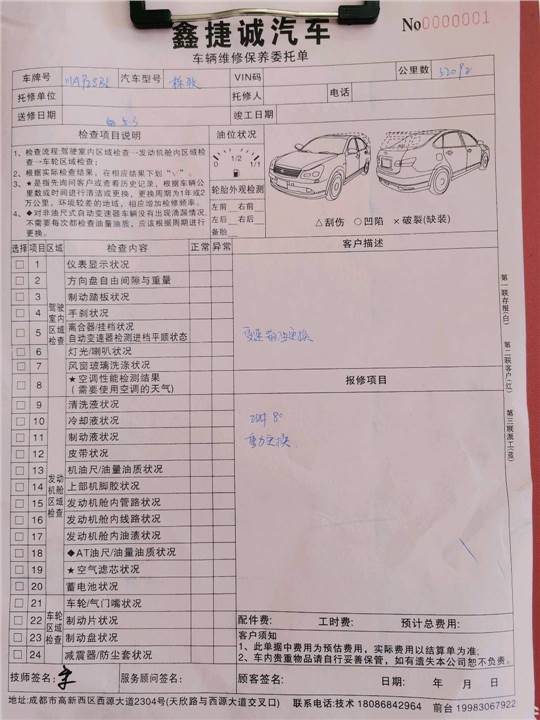 鑫捷诚汽车
No0000001
车辆维修保养委托单
车牌号 汽车型号 VIN码 公里数
托修单位 托修人 电话
送修日期 竣工日期
检查项目说明 油位状况
1、检查流程:驾驶室内区域检查→发动机舱内区域检查→车轮区域检查;
2、根据实际检查结果,在相应结果下划“√”。
3、★是指先询问客户或查看历史记录,根据车辆公里数或时间进行清洁或更换,更换周期为1年或2万公里,环境较差的地域,相应增加检修频率。
4、◆对非油尺式自动变速器车辆没有出现渗漏情况,不需要每次都检查油量油质,应该根据周期进行更换。
0 1/2 1/1
轮胎外观检测
左前 右前
左后 右后
备胎
△刮伤 ○凹陷 ×破裂(缺装)
选择 项目 区域 检查内容 正常 异常 客户描述
驾驶室内区域检查
1 仪表显示状况
2 方向盘自由间隙与重量
3 制动踏板状况
4 手刹状况
5 离合器/挂档状况
自动变速器检测进档平顺状态
6 灯光/喇叭状况
7 风窗玻璃洗涤状况
8 ★空调性能检测结果
(需要使用空调的天气)
报修项目
发动机舱区域检查
9 清洗液状况
10 冷却液状况
11 制动液状况
12 皮带状况
13 机油尺/油量油质状况
14 上部机脚胶状况
15 发动机舱内管路状况
16 发动机舱内线路状况
17 发动机舱内油渍状况
18 ◆AT油尺/油量油质状况
19 ★空气滤芯状况
20 蓄电池状况
车轮区域检查
21 车轮/气门嘴状况
22 制动片状况
23 制动盘状况
24 减震器/防尘套状况
配件费: 工时费: 预计总费用:
客户须知
1、此单据中费用为预估费用,实际费用以结算单为准;
2、车内贵重物品请自行妥善保管,如有遗失本公司恕不负责。
技师签名: 服务顾问签名: 顾客签名: 日期: 年 月 日
地址:成都市高新西区西源大道2304号(天欣路与西源大道交叉口) 联系电话:技术 18086842964 前台 19983067922
第一联存根(白)
第二联客户(红)
第三联派工(蓝)